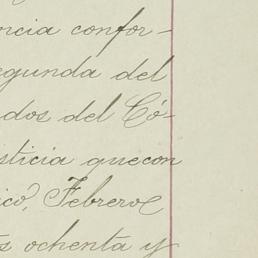 ncia confor-
egunda del
dos del Có-
sticia que con
ico, Febrero
s ochenta y